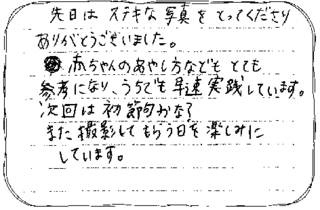 先日は ステキな写真をとってくださり
ありがとうございました。
赤ちゃんのあやし方なども とても
参考になり、うちでも早速実践しています。
次回は初節句かな?
また撮影してもらう日を楽しみに
しています。